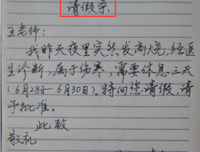 请假条
王老师：
我昨天夜里突然发高烧，经医
生诊断，属于伤寒，需要休息三天
(6月28日-6月30日)，特向您请假，请
予批准。
此致
敬礼